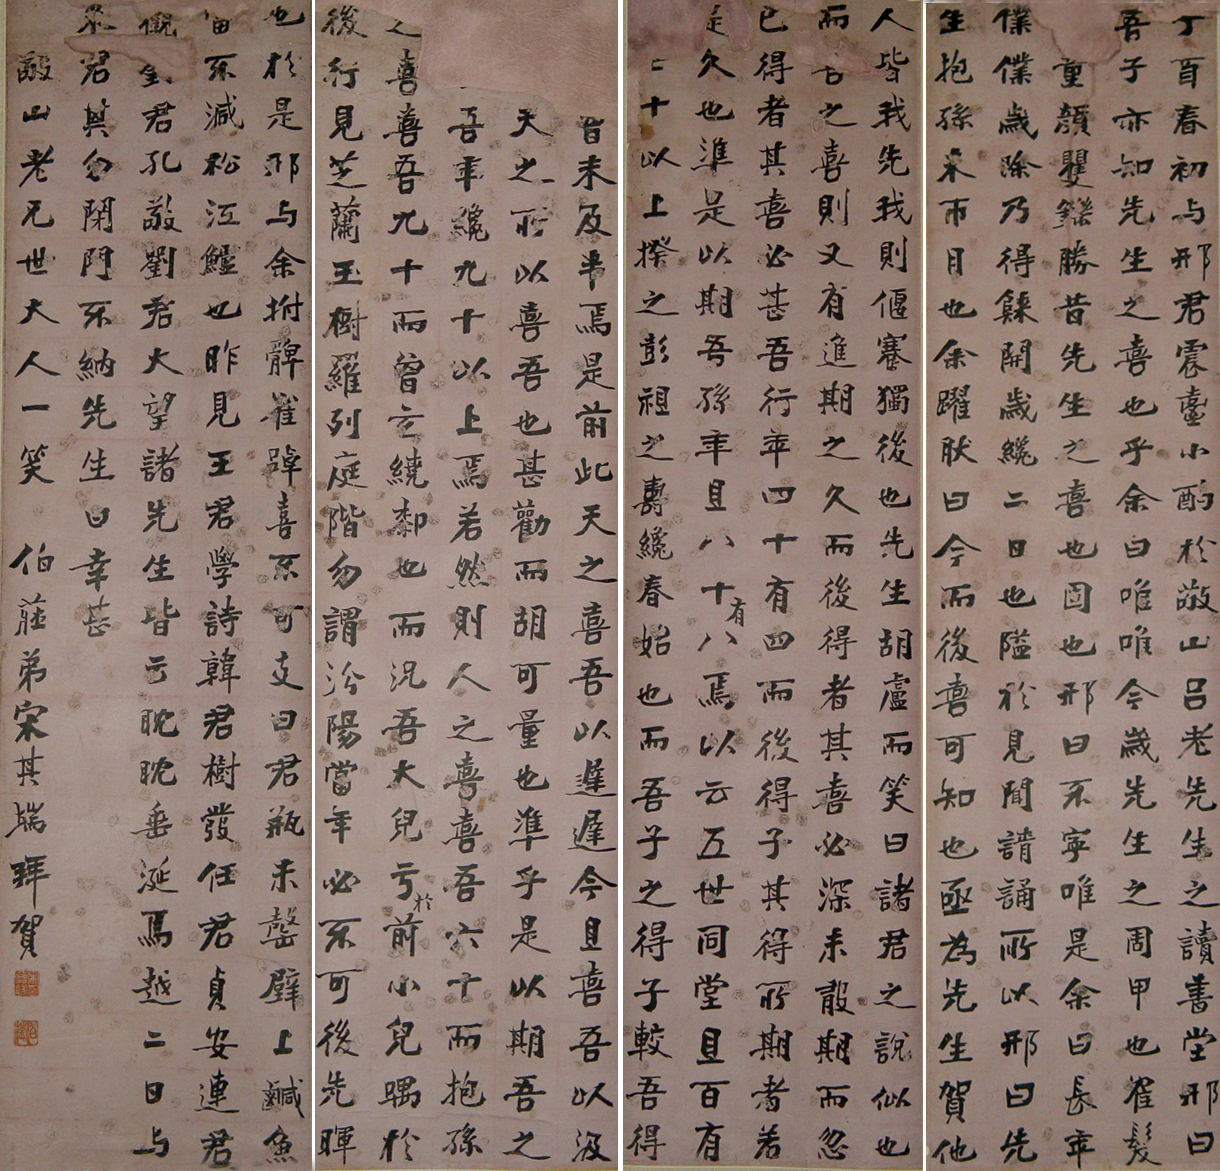 丁酉春初与邢君震臺小酌於敬山呂老先生之讀書堂邢曰
吾子亦知先生之喜也乎余曰唯唯今歲先生之周甲也隺髮
童顏矍鑠勝昔先生之喜也固也邢曰不寧唯是余曰長年
僕僕歲除乃得錄開歲纔二日也隘於見聞請誦所以邢曰先
生抱孫來帀月也余躍肰曰今而後喜可知也亟為先生賀他
人皆我先我則偃蹇獨後也先生胡盧而笑曰諸君之說似也
而吾之喜則又有進期之久而後得者其喜必深未敢期而忽
已得者其喜必甚吾行年四十有四而後得子其得所期者若
是久也準是以期吾孫年且八十有八焉以云五世同堂且百有
二十以上揆之彭祖之壽纔春始也而吾子之得子較吾得
皆未及半焉是前此天之喜吾以遲遲今且喜吾以汲
天之所以喜吾也甚勸而胡可量也準乎是以期吾之
吾年纔九十以上焉若然則人之喜喜吾六十而抱孫
之喜喜吾九十而曾玄繞厀也而況吾大兒亏於前小兒喁於
後行見芝蘭玉樹羅列庭階勿謂汾陽當年必不可後先暉
也於是邢与余拊髀雀踔喜不可支曰君瓶未罄壁上鹹魚
留不減松江鱸也昨見王君學詩韓君樹發任君貞安連君
佩釗君孔敬劉君大望諸先生皆云眈眈垂涎焉越二日与
眾君其勿閉門不納先生曰幸甚
敬山老兄世大人一笑　伯莊弟宋其瑞拜賀